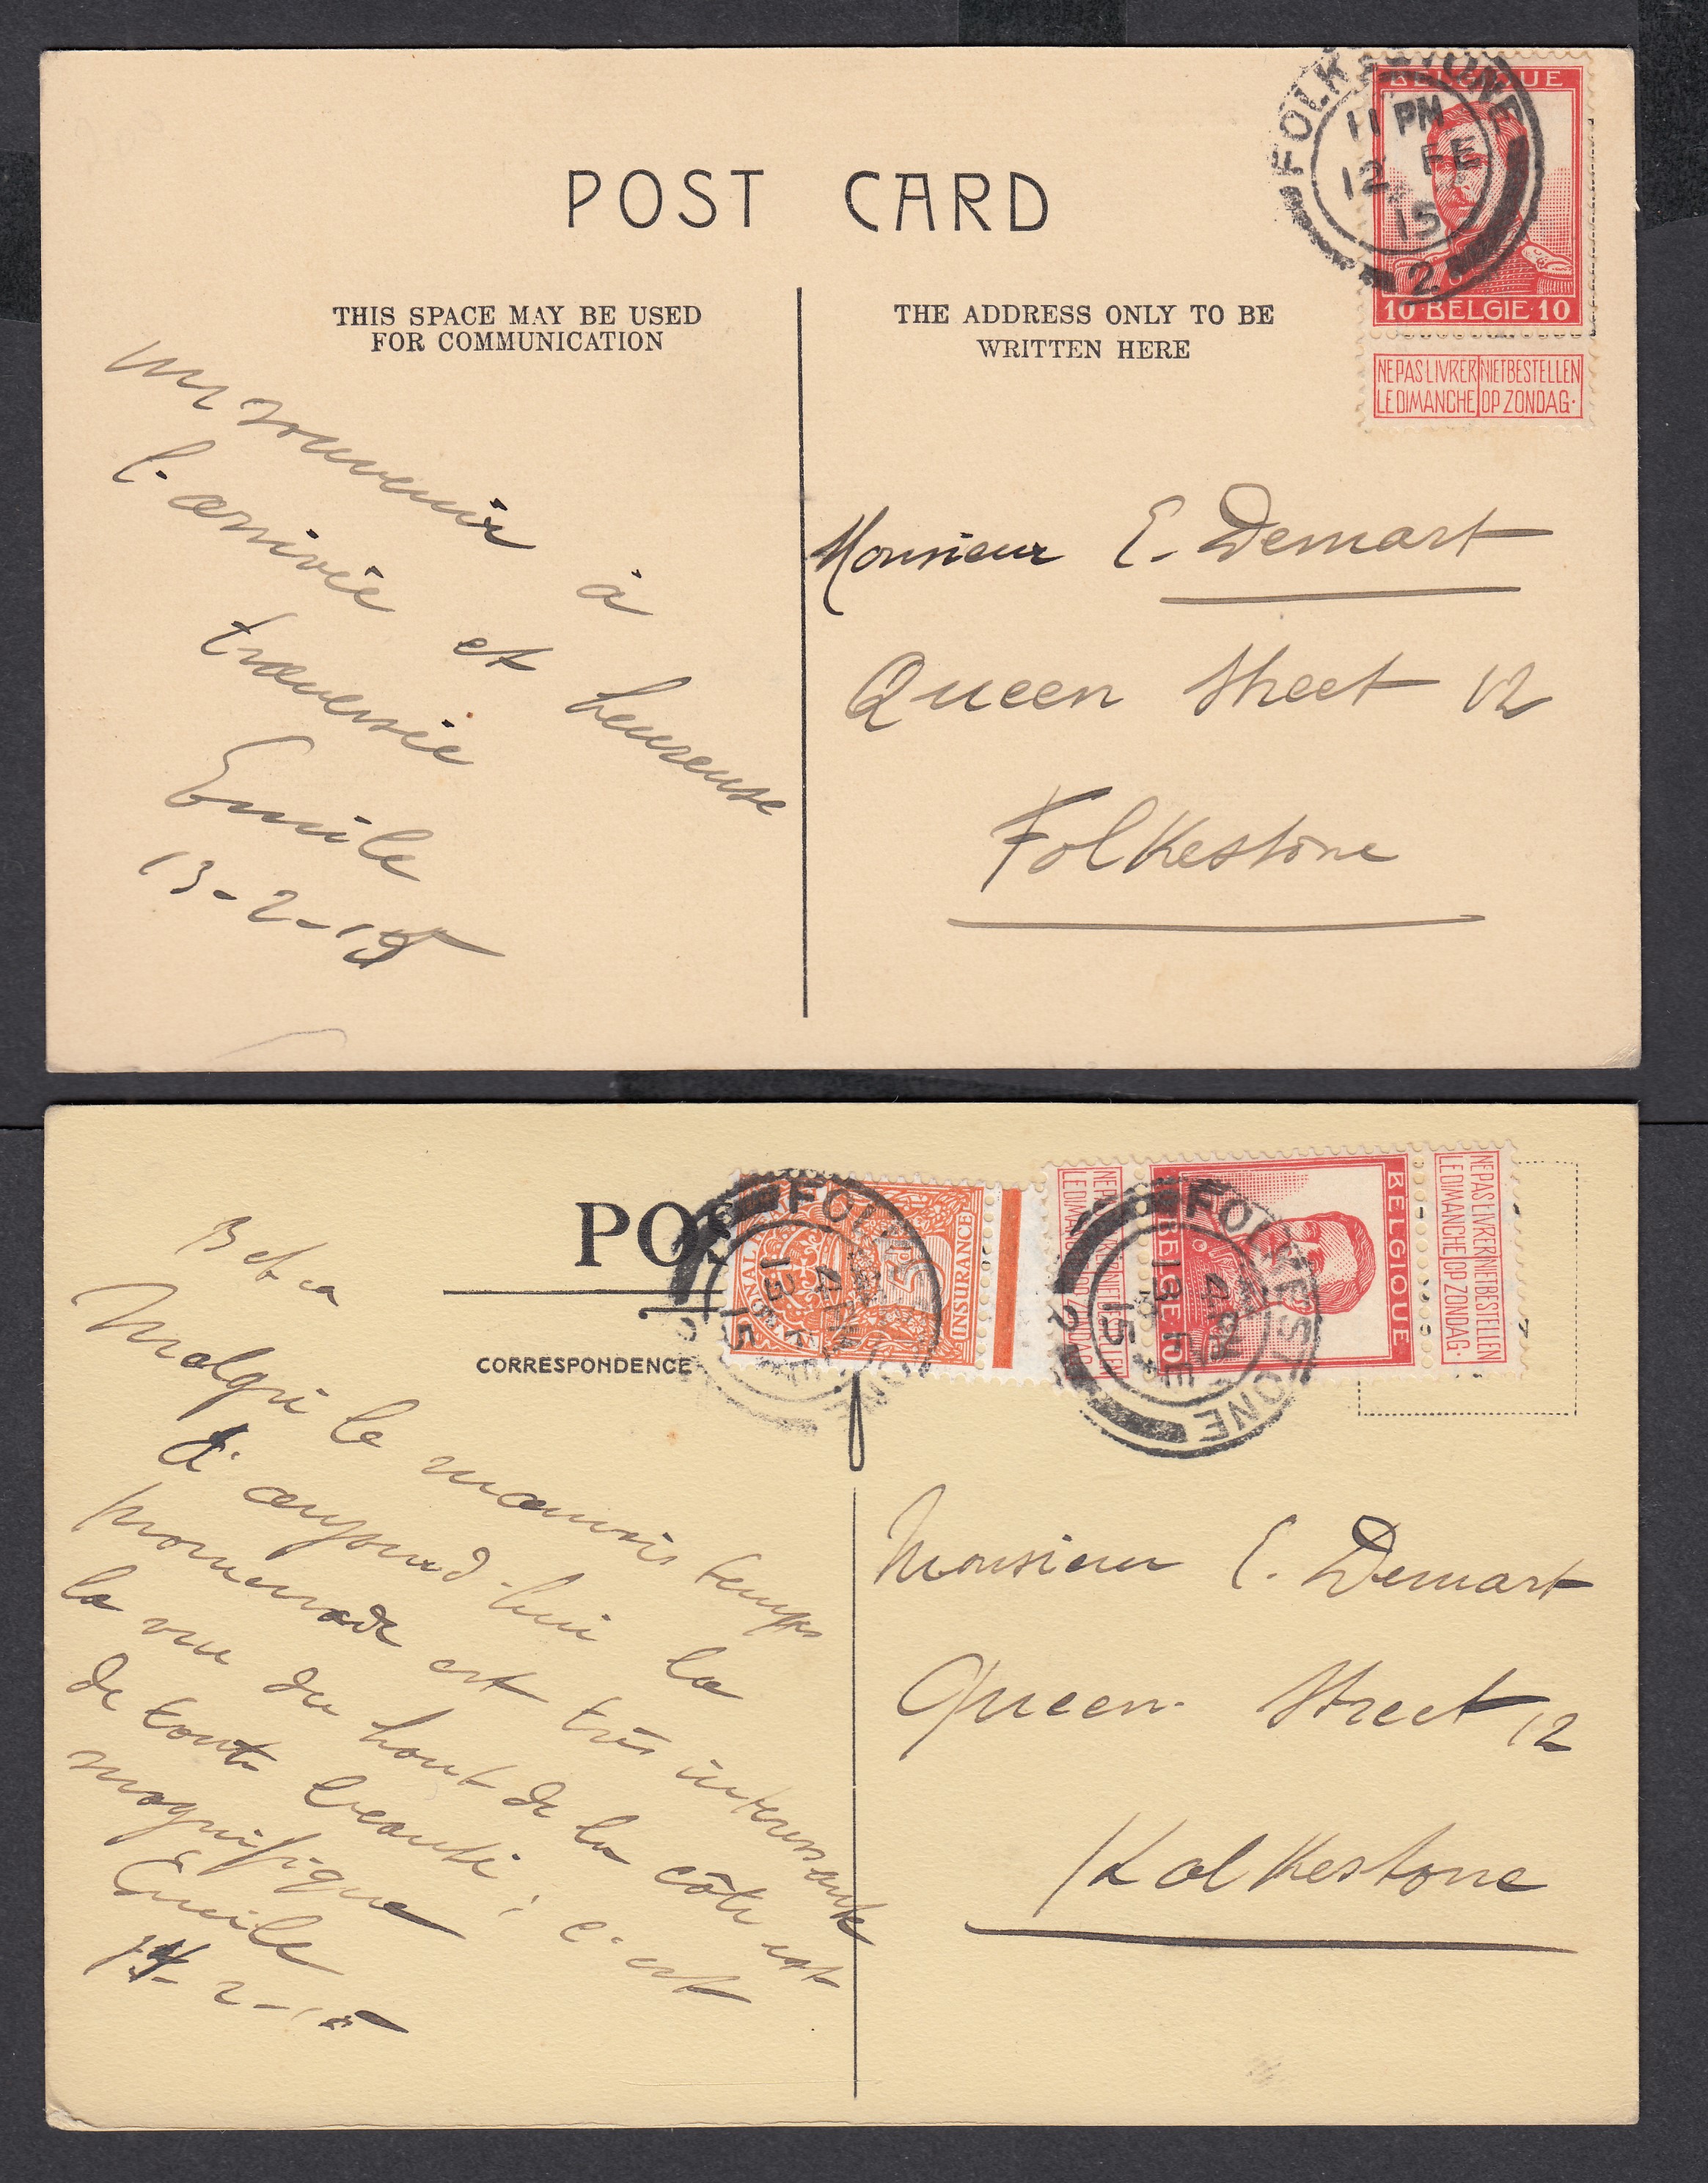 POST CARD
THIS SPACE MAY BE USED
FOR COMMUNICATION
THE ADDRESS ONLY TO BE
WRITTEN HERE
FOLKESTONE
11 PM
12 FE
15
2
BELGIQUE
10 BELGIE 10
NE PAS LIVRER NIET BESTELLEN
LE DIMANCHE OP ZONDAG.
un souvenir à
l'arrivée et heureuse
traversée
Emile
13-2-15
Monsieur E. Demart
Queen Street 12
Folkestone
POS
CORRESPONDENCE
INSURANCE
FOLKESTONE
4 PM
13 FE
15
NE PAS LIVRER NIET BESTELLEN
LE DIMANCHE OP ZONDAG.
BELGIQUE
BELGIE 10
NE PAS LIVRER NIET BESTELLEN
LE DIMANCHE OP ZONDAG.
FOLKESTONE
4 PM
13 FE
15
2
Malgré le mauvais temps
d'aujourd-hui la
promenade est très intéressante
la vue du haut de la côte est
de toute beauté; c'est
magnifique
Emile
14-2-15
Monsieur E. Demart
Queen Street 12
Folkestone